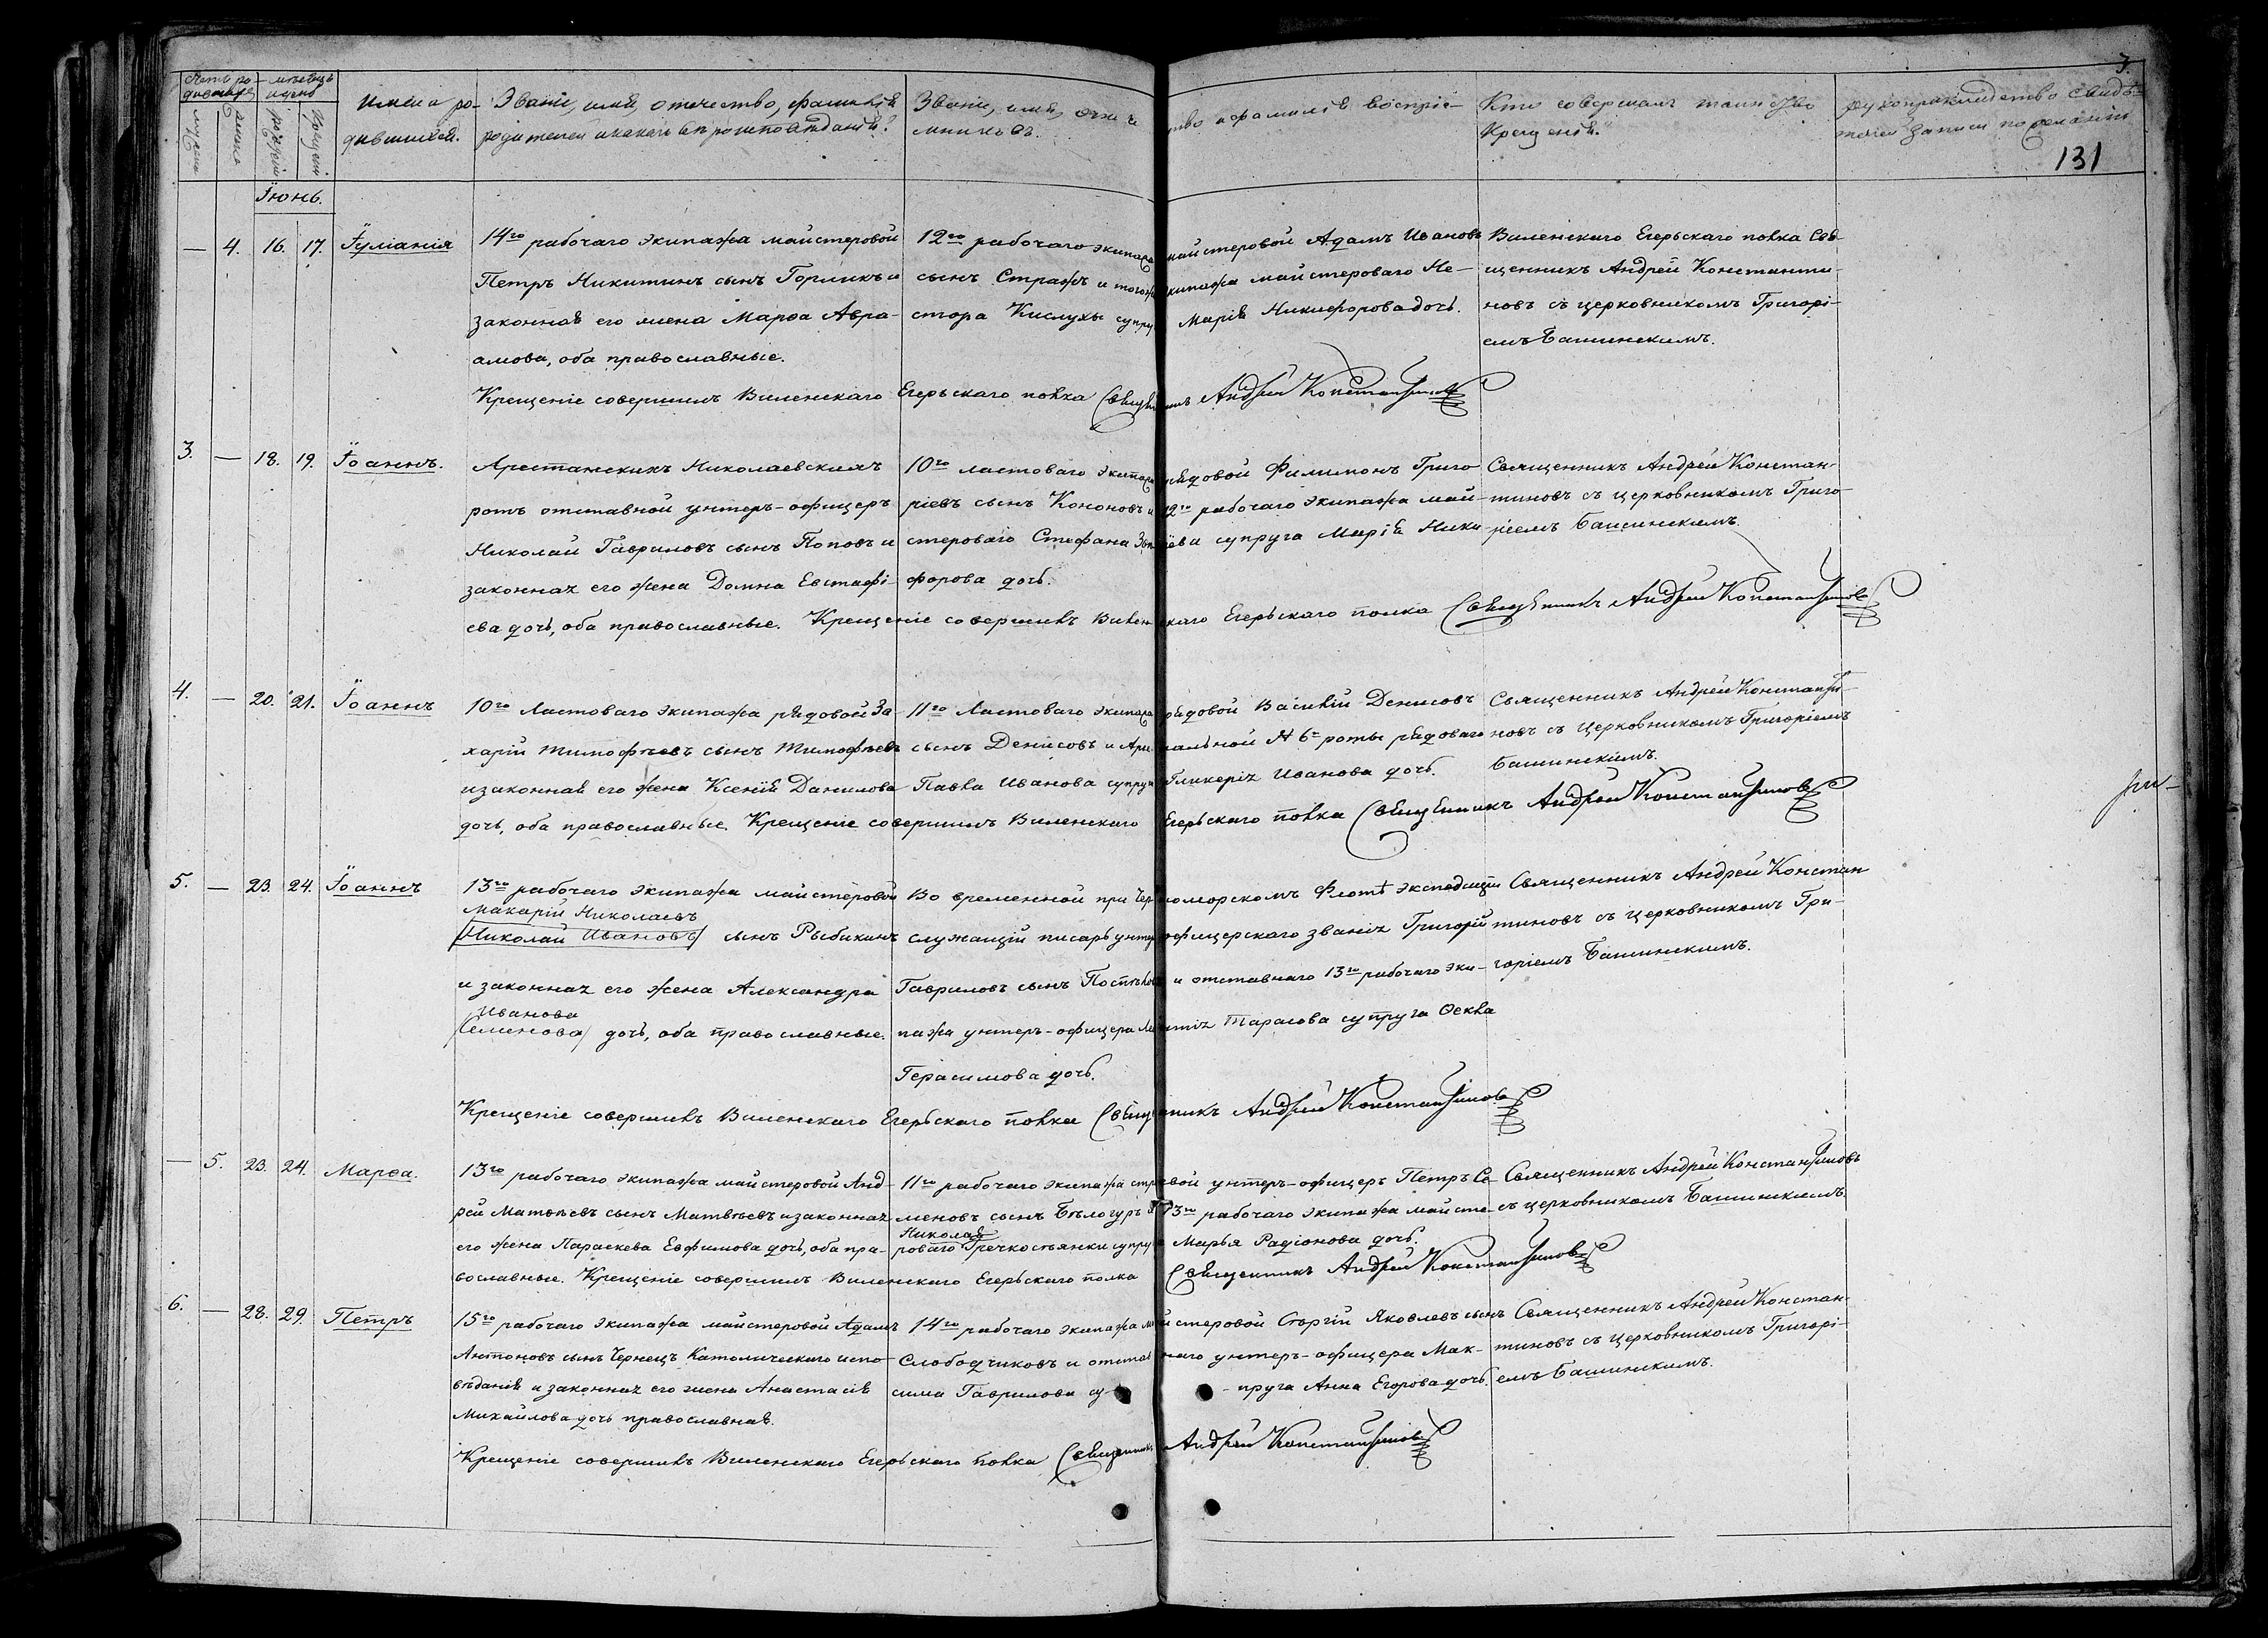 3.
131
Счетъ ро-
дившихся
мѣсяцъ
и день
мужеска
женска
рожденія
крещенія
Имена ро-
дившихся.
Званіе, имя, отечество, фамилія
родителей и какого вѣроисповѣданія?
Званіе, имя, отече ство и фамилія воспріе-
мниковъ.
Кто совершалъ таинство
крещенія?
Рукоприкладство свидѣ-
телей записи по желанію
Іюнь.
— 4. 16. 17. Іуліанія
14го рабочаго экипажа майстеровой
Петръ Никитинъ сынъ Горликъ и
законная его жена Марѳа Авра-
амова, оба православные.
12го рабочаго экипажа майстеровой Адамъ Ивановъ
сынъ Стражъ и тогожъ экипажа майстероваго Не-
стора Кислухы супруга Марія Никифорова дочь.
Виленскаго Егерьскаго полка Свя-
щенникъ Андрей Константи-
новъ съ церковникомъ Григорі-
емъ Башинскимъ.
Крещеніе совершилъ Виленскаго Егерьскаго полка Священникъ Андрей Константиновъ
3. — 18. 19. Іоаннъ.
Арестанскихъ Николаевскихъ
ротъ отставной унтеръ-офицеръ
Николай Гавриловъ сынъ Поповъ и
законная его жена Домна Евстафі-
ева дочь, оба православные. Крещеніе совершилъ Виленскаго Егерьскаго полка Священникъ Андрей Константиновъ
10го ластоваго экипажа рядовой Филимонъ Григо
ріевъ сынъ Кононовъ и 12го рабочаго экипажа май-
стероваго Стефана супруга Марія Ники-
форова дочь.
Священникъ Андрей Констан-
тиновъ съ церковникомъ Григо-
ріемъ Башинскимъ.
4. — 20. 21. Іоаннъ
10го Ластоваго экипажа рядовой За-
харій Тимофѣевъ сынъ Тимофѣевъ
и законная его жена Ксенія Данилова
дочь, оба православные. Крещеніе совершилъ Виленскаго Егерьскаго полка Священникъ Андрей Константиновъ
11го Ластоваго экипажа рядовой Василій Денисовъ
сынъ Денисовъ и № 6й роты рядоваго
Павла Иванова супруга Гликерія Иванова дочь.
Священникъ Андрей Константи-
новъ съ церковникомъ Григоріемъ
Башинскимъ.
5. — 23. 24. Іоаннъ
13го рабочаго экипажа майстеровой
Макарій Николаевъ
(Николай Ивановъ) сынъ Рыбикинъ
и законная его жена Александра
Иванова
(Семенова) дочь, оба православные.
Во временной при Черноморскомъ Флотѣ экспедиціи
служащій писарь унтеръ-офицерскаго званія Григорій
Гавриловъ сынъ и отставнаго 13го рабочаго эки-
пажа унтеръ-офицера Тарасова супруга Ѳекла
Герасимова дочь.
Священникъ Андрей Констан
тиновъ съ церковникомъ Гри-
горіемъ Башинскимъ.
Крещеніе совершилъ Виленскаго Егерьскаго полка Священникъ Андрей Константиновъ
— 5. 23. 24. Марѳа.
13го рабочаго экипажа майстеровой Анд-
рей Матвѣевъ сынъ Матвѣевъ и законная
его жена Параскева Евфимова дочь, оба пра-
вославные. Крещеніе совершилъ Виленскаго Егерьскаго полка Священникъ Андрей Константиновъ
11го рабочаго экипажа строевой унтеръ-офицеръ Петръ Се-
меновъ сынъ Бѣлогуръ и 13го рабочаго экипажа майсте-
Николая
роваго Гречкосѣянки супруга Марья Радіонова дочь.
Священникъ Андрей Константиновъ
съ церковникомъ Башинскимъ.
6. — 28. 29. Петръ
15го рабочаго экипажа майстеровой Адамъ
Антоновъ сынъ Чернецъ Католическаго испо-
вѣданія и законная его жена Анастасія
Михайлова дочь православная.
14го рабочаго экипажа майстеровой Сергій Яковлевъ сынъ
Слободчиковъ и отставнаго унтеръ-офицера Мак-
сима Гаврилова су-пруга Анна Егорова дочь.
Священникъ Андрей Констан-
тиновъ съ церковникомъ Григорі-
емъ Башинскимъ.
Крещеніе совершилъ Виленскаго Егерьскаго полка Священникъ Андрей Константиновъ